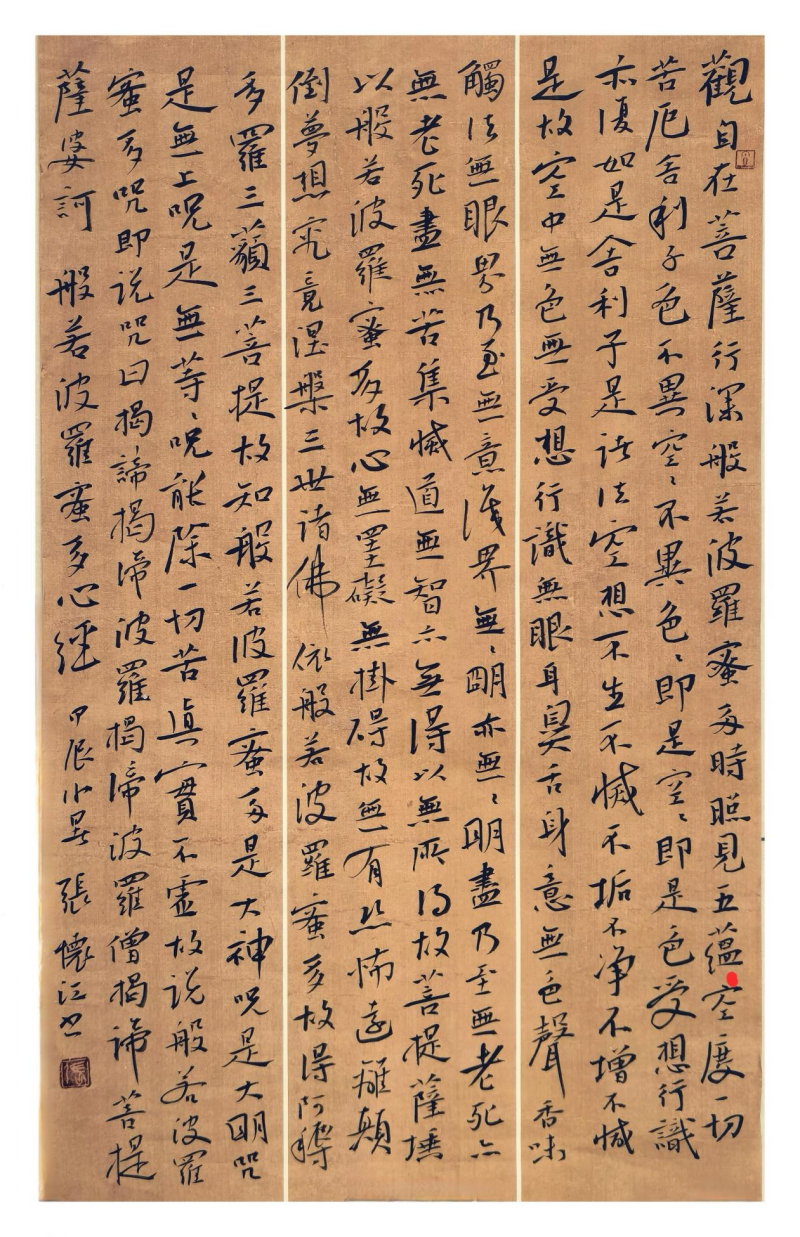 觀自在菩薩行深般若波羅蜜多時照見五蘊空度一切
苦厄舍利子色不異空〻不異色〻即是空〻即是色受想行識
亦復如是舍利子是諸法空想不生不滅不垢不净不增不減
是故空中無色無受想行識無眼耳鼻舌身意無色聲香味
觸法無眼界乃至無意識界無〻明亦無〻明盡乃至無老死亦
無老死盡無苦集滅道無智亦無得以無所得故菩提薩埵
以般若波羅蜜多故心無罣礙無掛碍故無有恐怖遠離顛
倒夢想究竟涅槃三世諸佛依般若波羅蜜多故得阿耨
多羅三藐三菩提故知般若波羅蜜多是大神咒是大明咒
是無上咒是無等〻咒能除一切苦真實不虛故説般若波羅
蜜多咒即説咒曰揭諦揭諦波羅揭諦波羅僧揭諦菩提
薩婆訶 般若波羅蜜多心經 甲辰小暑 張懷江書